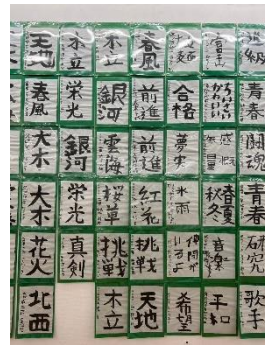 天地
木立
木立
春風
進級
春風
栄光
銀河
前進
合格
青春
大木
銀河
雲海
前進
夢実
闘魂
大木
栄光
桜草
紅花
氷雨
春夏
秋冬
青春
花火
真剣
挑戦
挑戦
仲間が
いるよ
音楽
研究
北西
木立
天地
希望
平和
歌手